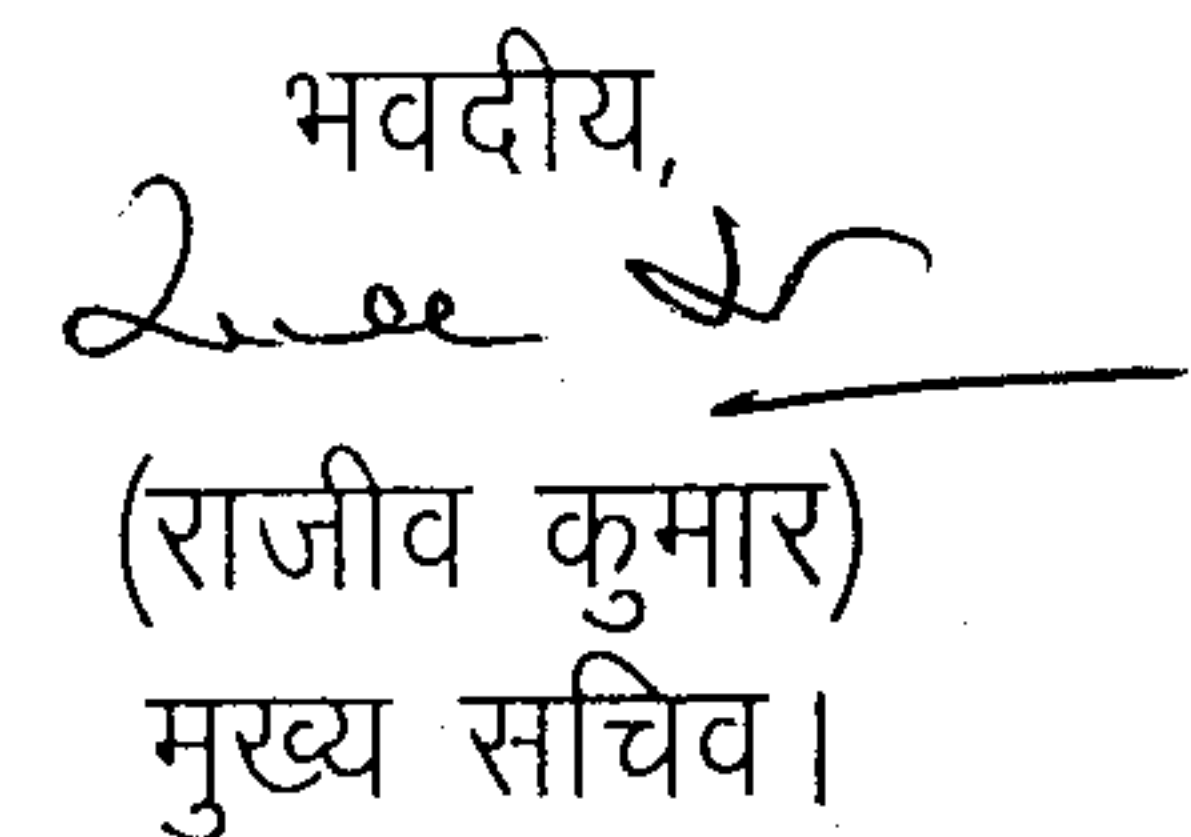 भवदीय,
(राजीव कुमार)
मुख्य सचिव।